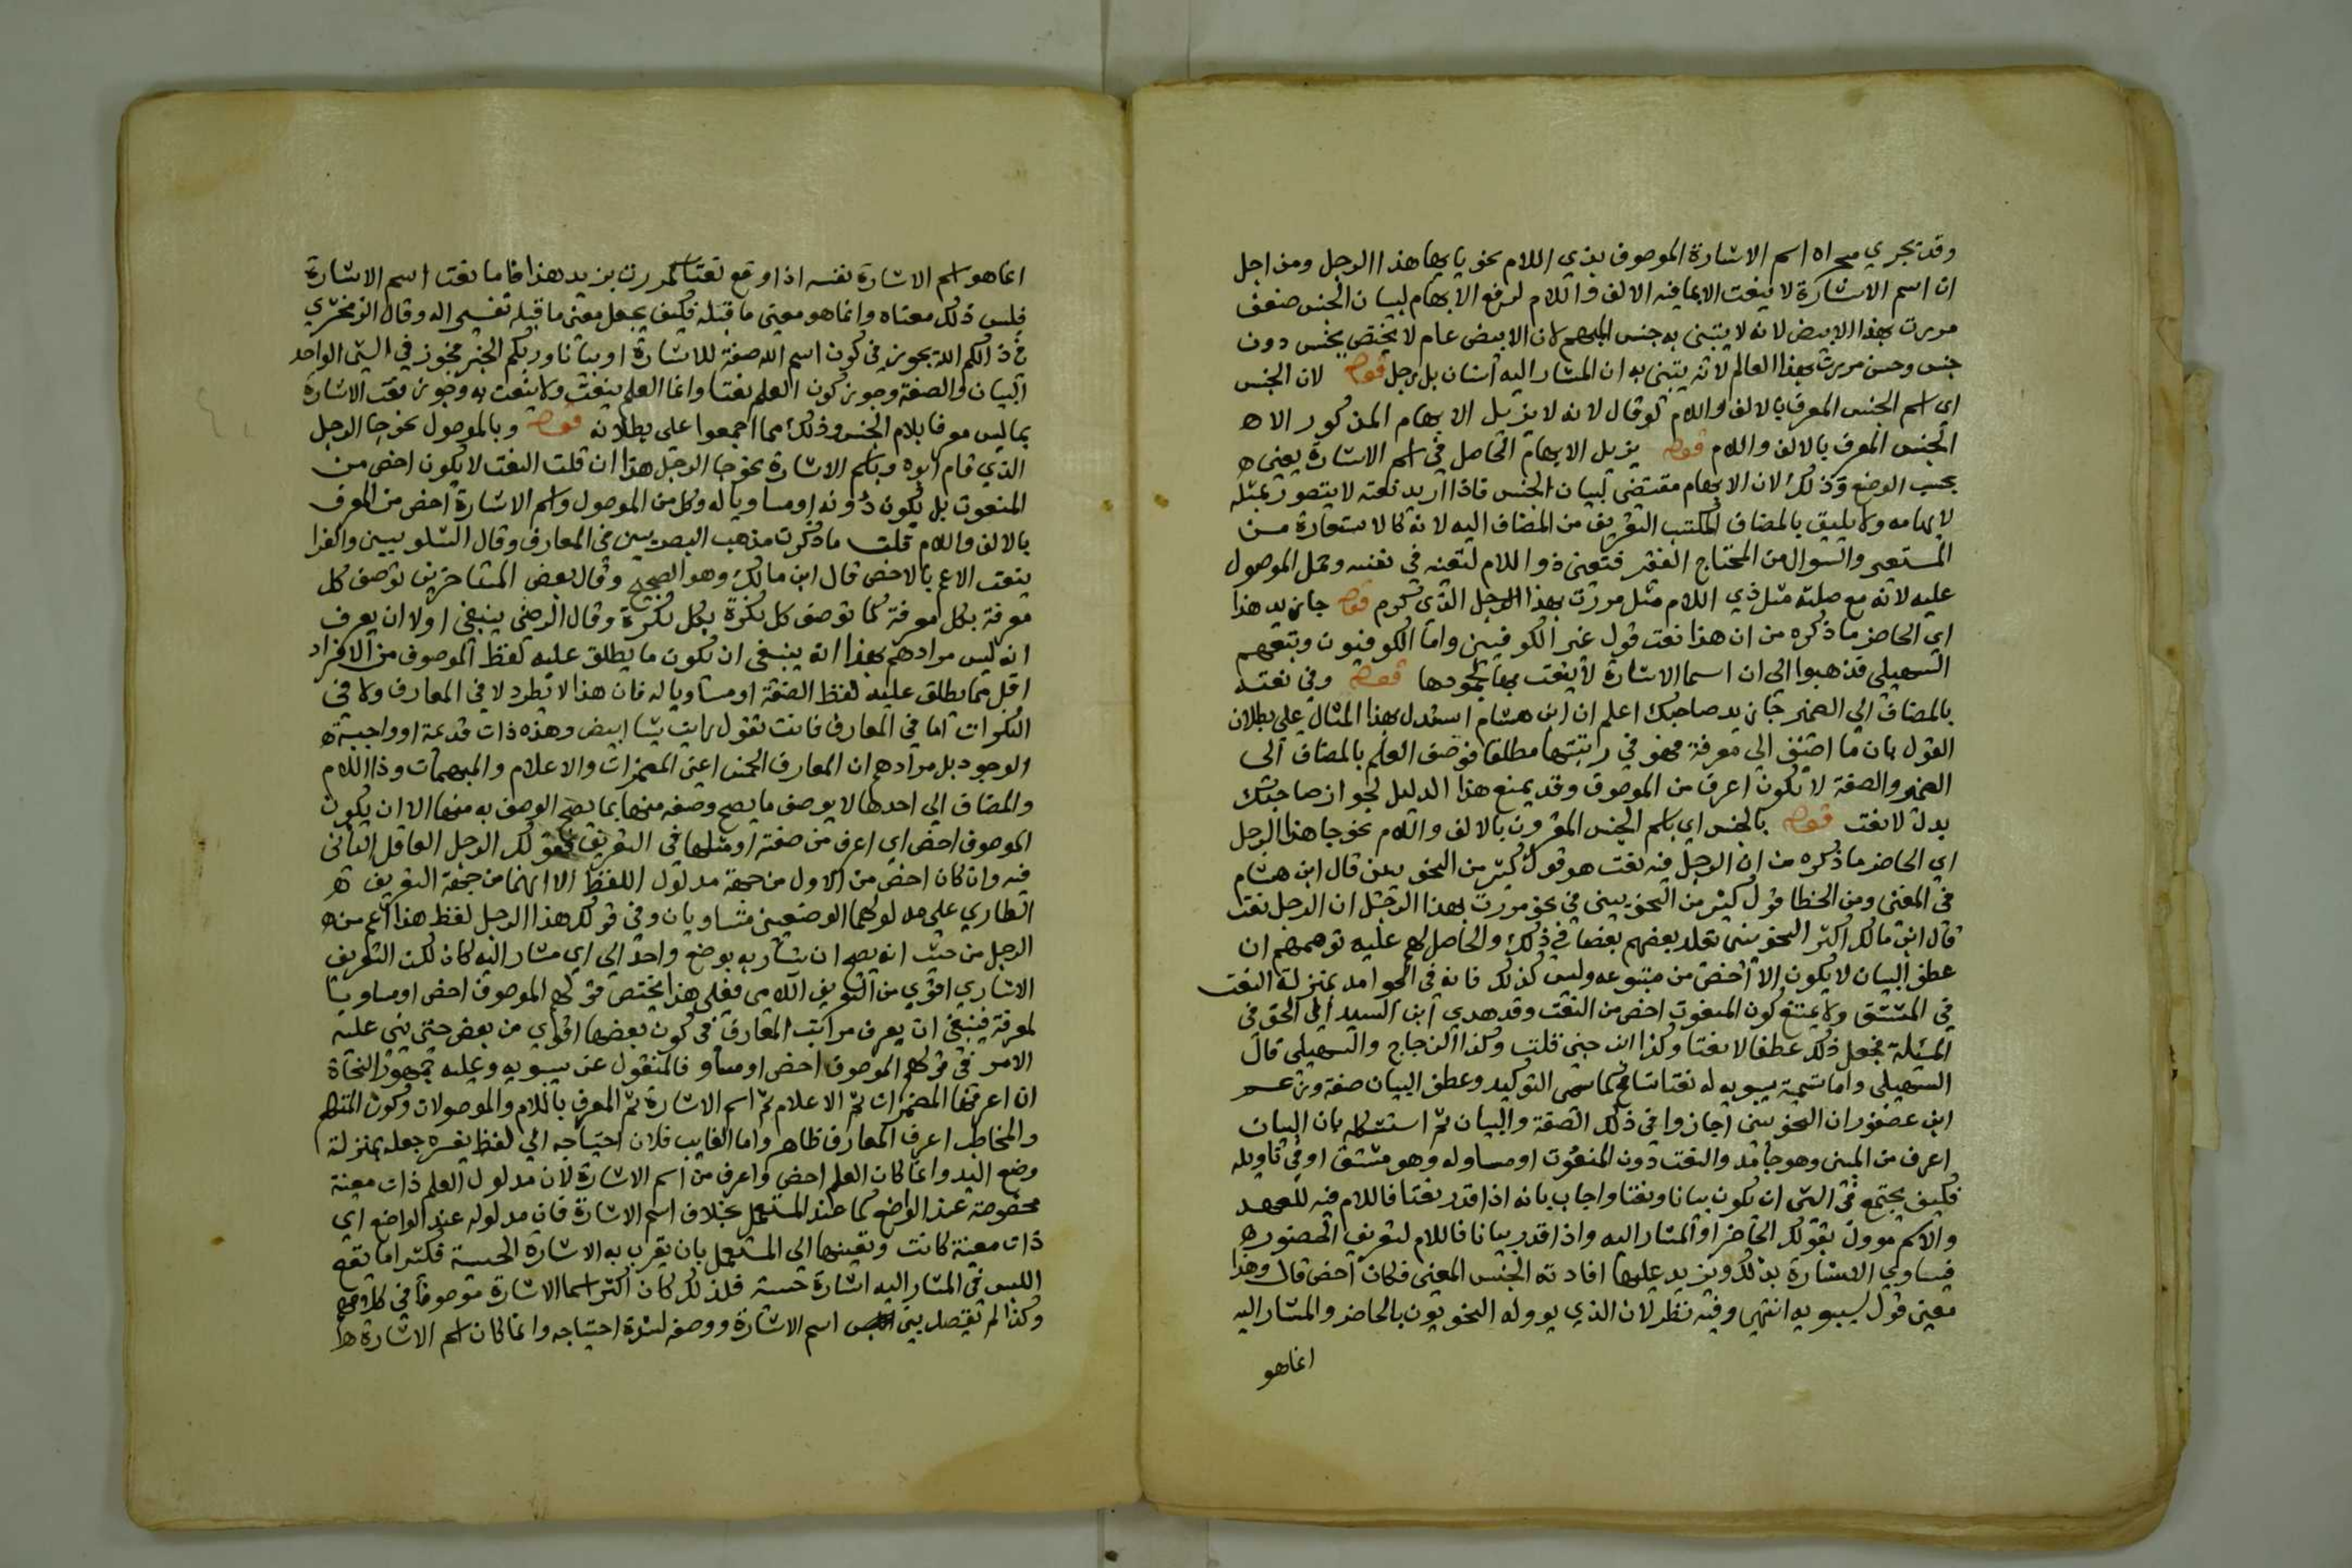 وقد تجري مجراه اسم الاشارة الموصوف بذي اللام نحو يا ايها هذا الرجل ومن اجل
ان اسم الاشارة لا ينعت الا بما فيه الالف واللام لرفع الابهام لبيان الجنس ضعف
مررت بهذا الابيض لانه لا يتبين به جنس المبهم لان الابيض عام لا يختص بجنس دون
جنس وحسن مررت بهذا العالم لانه يتبين به ان المشار اليه انسان بل رجل قوله لان الجنس
اي اسم الجنس المعرف بالالف واللام لو قال لانه لا يزيل الابهام المذكور الا
الجنس المعرف بالالف واللام قوله يزيل الابهام الحاصل في اسم الاشارة يعني
بحسب الوضع وذلك لان الابهام مقتضي لبيان الجنس فاذا اريد نعته لا يتصور بمثله
لابهامه ولا يليق بالمضاف المكتسب التعريف من المضاف اليه لانه كالاستعارة من
المستعير والسوال من المحتاج الفقير فتعين ذو اللام لتعينه في نفسه وحمل الموصول
عليه لانه مع صلته مثل ذي اللام مثل مررت بهذا الرجل الذي كرم قوله جا زيد هذا
اي الحاضر ما ذكره من ان هذا نعت قول غير الكوفيين واما الكوفيون وتبعهم
السهيلي فذهبوا الى ان اسما الاشارة لا ينعت بها لجمودها قوله وفي نعته
بالمضاف الى الضمير جا زيد صاحبك اعلم ان ابن هشام استدل بهذا المثال على بطلان
القول بان ما اضيف الى معرفة فهو في رتبتها مطلقا فوصف العلم بالمضاف الى
الضمير والصفة لا تكون اعرف من الموصوف وقد يمنع هذا الدليل لجواز صاحبك
بدل لا نعت قوله بالجنس اي باسم الجنس المقرون بالالف واللام نحو جا هذا الرجل
اي الحاضر ما ذكره من ان الرجل فيه نعت هو قول كثير من النحويين قال ابن هشام
في المغني ومن الخطا قول كثير من النحويين في نحو مررت بهذا الرجل ان الرجل نعت
قال ابن مالك اكثر النحويين يقلد بعضهم بعضا في ذلك والحاصل لهم عليه توهمهم ان
عطف البيان لا يكون الا اخص من متبوعه وليس كذلك فانه في الجوامد بمنزلة النعت
في المشتق ولا يمتنع كون المنعوت اخص من النعت وقد هدي ابن السيد الى الحق في
المسئلة فجعل ذلك عطفا لا نعتا وكذا ابن جني قلت وكذا الزجاج والسهيلي قال
السهيلي واما تسمية سيبويه له نعتا فتسامح كما سمى التوكيد وعطف البيان صفة وزعم
ابن عصفور ان النحويين اجازوا في ذلك الصفة والبيان ثم استشكله بان البيان
اعرف من المبين وهو جامد والنعت دون المنعوت او مساو له وهو مشتق او في تاويله
فكيف يجتمع في الشي ان يكون بيانا ونعتا واجاب بانه اذا قدر نعتا فاللام فيه للعهد
والاسم موول بقولك الحاضر او المشار اليه واذا قدر بيانا فاللام لتعريف الحضور
فيساوي الاشارة بذلك ويزيد عليها افادته الجنس المعين فكان اخص قال وهذا
معنى قول سيبويه انتهى وفيه نظر لان الذي يووله النحويون بالحاضر والمشار اليه
انما هو
انما هو اسم الاشارة نفسه اذا وقع نعتا كمررت بزيد هذا فاما نعت اسم الاشارة
فليس ذلك معناه وانما هو معنى ما قبله فكيف يجعل معنى ما قبله تفسيرا له وقال الزمخشري
في ذلكم الله يجوز في كون اسم الله صفة للاشارة او بيانا وربكم الخبر فجوز في الشي الواحد
البيان والصفة وجوز كون العلم نعتا وانما العلم ينعت ولا ينعت به وجوز نعت الاشارة
بما ليس معرفا بلام الجنس وذلك مما اجمعوا على بطلانه قوله وبالموصول نحو جا الرجل
الذي قام ابوه وباسم الاشارة نحو جا الرجل هذا ان قلت النعت لا يكون اخص من
المنعوت بل يكون دونه او مساويا له وكل من الموصول واسم الاشارة اخص من المعرف
بالالف واللام قلت ما ذكرت مذهب البصريين في المعارف وقال الشلوبيين والفرا
ينعت الاعم بالاخص قال ابن مالك وهو الصحيح وقال بعض المتاخرين توصف كل
معرفة بكل معرفة كما توصف كل نكرة بكل نكرة وقال الرضي ينبغي اولا ان يعرف
انه ليس مرادهم بهذا انه ينبغي ان يكون ما يطلق عليه لفظ الموصوف من الافراد
اقل مما يطلق عليه لفظ الصفة او مساويا له فان هذا لا يطرد لا في المعارف ولا في
النكرات اما في المعارف فانت تقول رايت شيا ابيض وهذه ذات قديمة او واجبة
الوجود بل مرادهم ان المعارف الخمس اعني المضمرات والاعلام والمبهمات وذا اللام
والمضاف الى احدها لا يوصف ما يصح وصفه منها بما يصح الوصف به منها الا ان يكون
الموصوف اخص اي اعرف من صفته او مثلها في التعريف فقولك الرجل العاقل الثاني
فيه وان كان اخص من الاول من جهة مدلول اللفظ الا انهما من جهة التعريف
الطاري على مدلولهما الوضعيين متساويان وفي قولك هذا الرجل لفظ هذا اعم من
الرجل من حيث انه يصح ان يشار به بوضع واحد الى اي مشار اليه كان لكن التعريف
الاشاري اقوى من التعريف اللامي فعلى هذا يختص قولهم الموصوف اخص او مساو بيا
لمعرفة فينبغي ان يعرف مراتب المعارف في كون بعضها اقوى من بعض حتى يبني عليه
الامر في قولهم الموصوف اخص او مساو فالمنقول عن سيبويه وعليه جمهور النحاة
ان اعرفها المضمرات ثم الاعلام ثم اسم الاشارة ثم المعرف باللام والموصولات وكون المتكلم
والمخاطب اعرف المعارف ظاهر واما الغايب فلان احتياجه الى لفظ يفسره جعله بمنزلة
وضع اليد وانما كان العلم اخص واعرف من اسم الاشارة لان مدلول العلم ذات معينة
مخصوصة عند الواضع كما عند المستعمل بخلاف اسم الاشارة فان مدلوله عند الواضع اي
ذات معينة كانت وتعيينها الى المستعمل بان يقرن به الاشارة الحسية فكثيرا ما تقع
اللبس في المشار اليه اشارة حسية فلذلك كان اكثر اسما الاشارة موصوفا في كلامهم
وكذا لم يفصل بين اسم الاشارة ووصفه لشدة احتياجه وانما كان اسم الاشارة